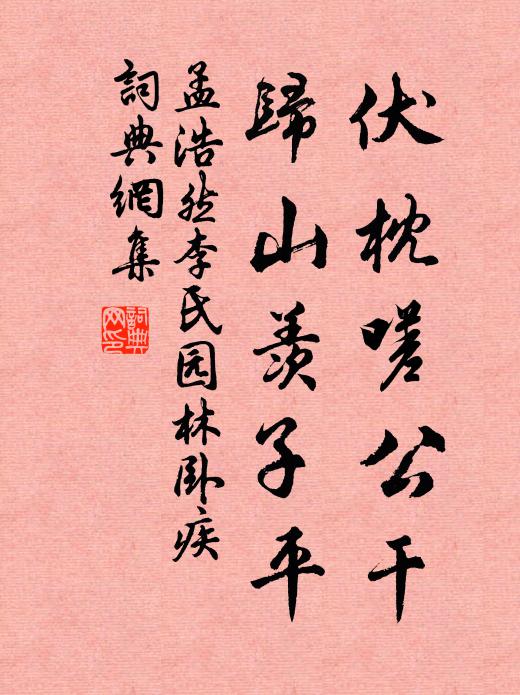 伏枕嗟公干
歸山羨子平
孟浩然李氏园林卧疾
詞典網集
詞典網印